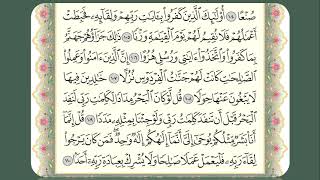 صُنْعًا ١٠٤ أُولَٰئِكَ الَّذِينَ كَفَرُوا بِآيَاتِ رَبِّهِمْ وَلِقَائِهِ فَحَبِطَتْ
أَعْمَالُهُمْ فَلَا نُقِيمُ لَهُمْ يَوْمَ الْقِيَامَةِ وَزْنًا ١٠٥ ذَٰلِكَ جَزَاؤُهُمْ جَهَنَّمُ
بِمَا كَفَرُوا وَاتَّخَذُوا آيَاتِي وَرُسُلِي هُزُوًا ١٠٦ إِنَّ الَّذِينَ آمَنُوا وَعَمِلُوا
الصَّالِحَاتِ كَانَتْ لَهُمْ جَنَّاتُ الْفِرْدَوْسِ نُزُلًا ١٠٧ خَالِدِينَ فِيهَا
لَا يَبْغُونَ عَنْهَا حِوَلًا ١٠٨ قُل لَّوْ كَانَ الْبَحْرُ مِدَادًا لِّكَلِمَاتِ رَبِّي لَنَفِدَ
الْبَحْرُ قَبْلَ أَن تَنفَدَ كَلِمَاتُ رَبِّي وَلَوْ جِئْنَا بِمِثْلِهِ مَدَدًا ١٠٩ قُلْ إِنَّمَا
أَنَا بَشَرٌ مِّثْلُكُمْ يُوحَىٰ إِلَيَّ أَنَّمَا إِلَٰهُكُمْ إِلَٰهٌ وَاحِدٌ فَمَن كَانَ يَرْجُوا
لِقَاءَ رَبِّهِ فَلْيَعْمَلْ عَمَلًا صَالِحًا وَلَا يُشْرِكْ بِعِبَادَةِ رَبِّهِ أَحَدًا ١١٠